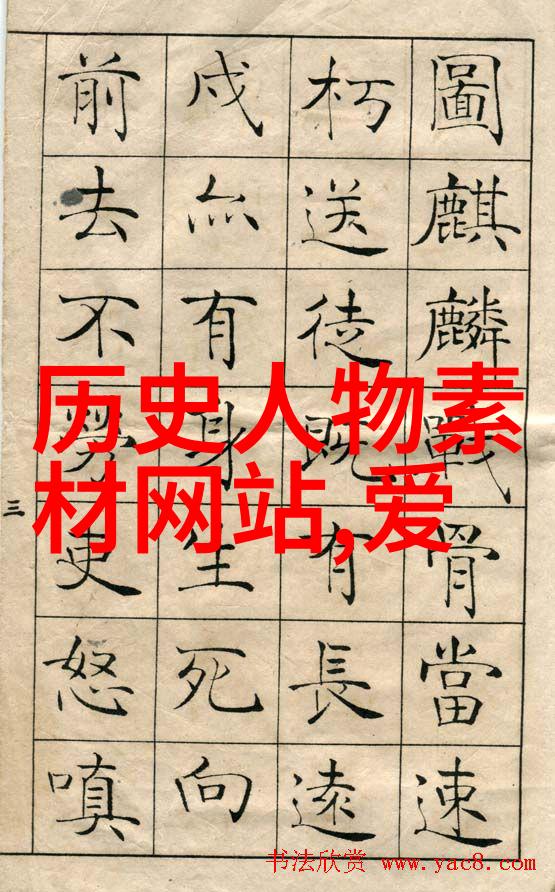 圖麒麟戰骨當速
朽送徒既有長遠
戍亦有身生死向
前去不勞吏怒嗔
三
历史人物素
材网站,爱
书法欣赏 www.yac8.com